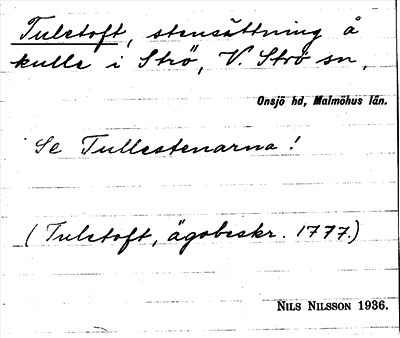 Tulstoft, stensättning å
kulle i Strö, V. Strö sn,
Onsjö hd, Malmöhus län.
Se Tullestenarna!
(Tulstoft, ägobeskr. 1777.)
NILS NILSSON 1936.